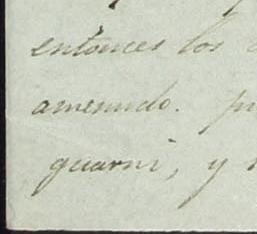 entónces los
amenudo.
guarni, y